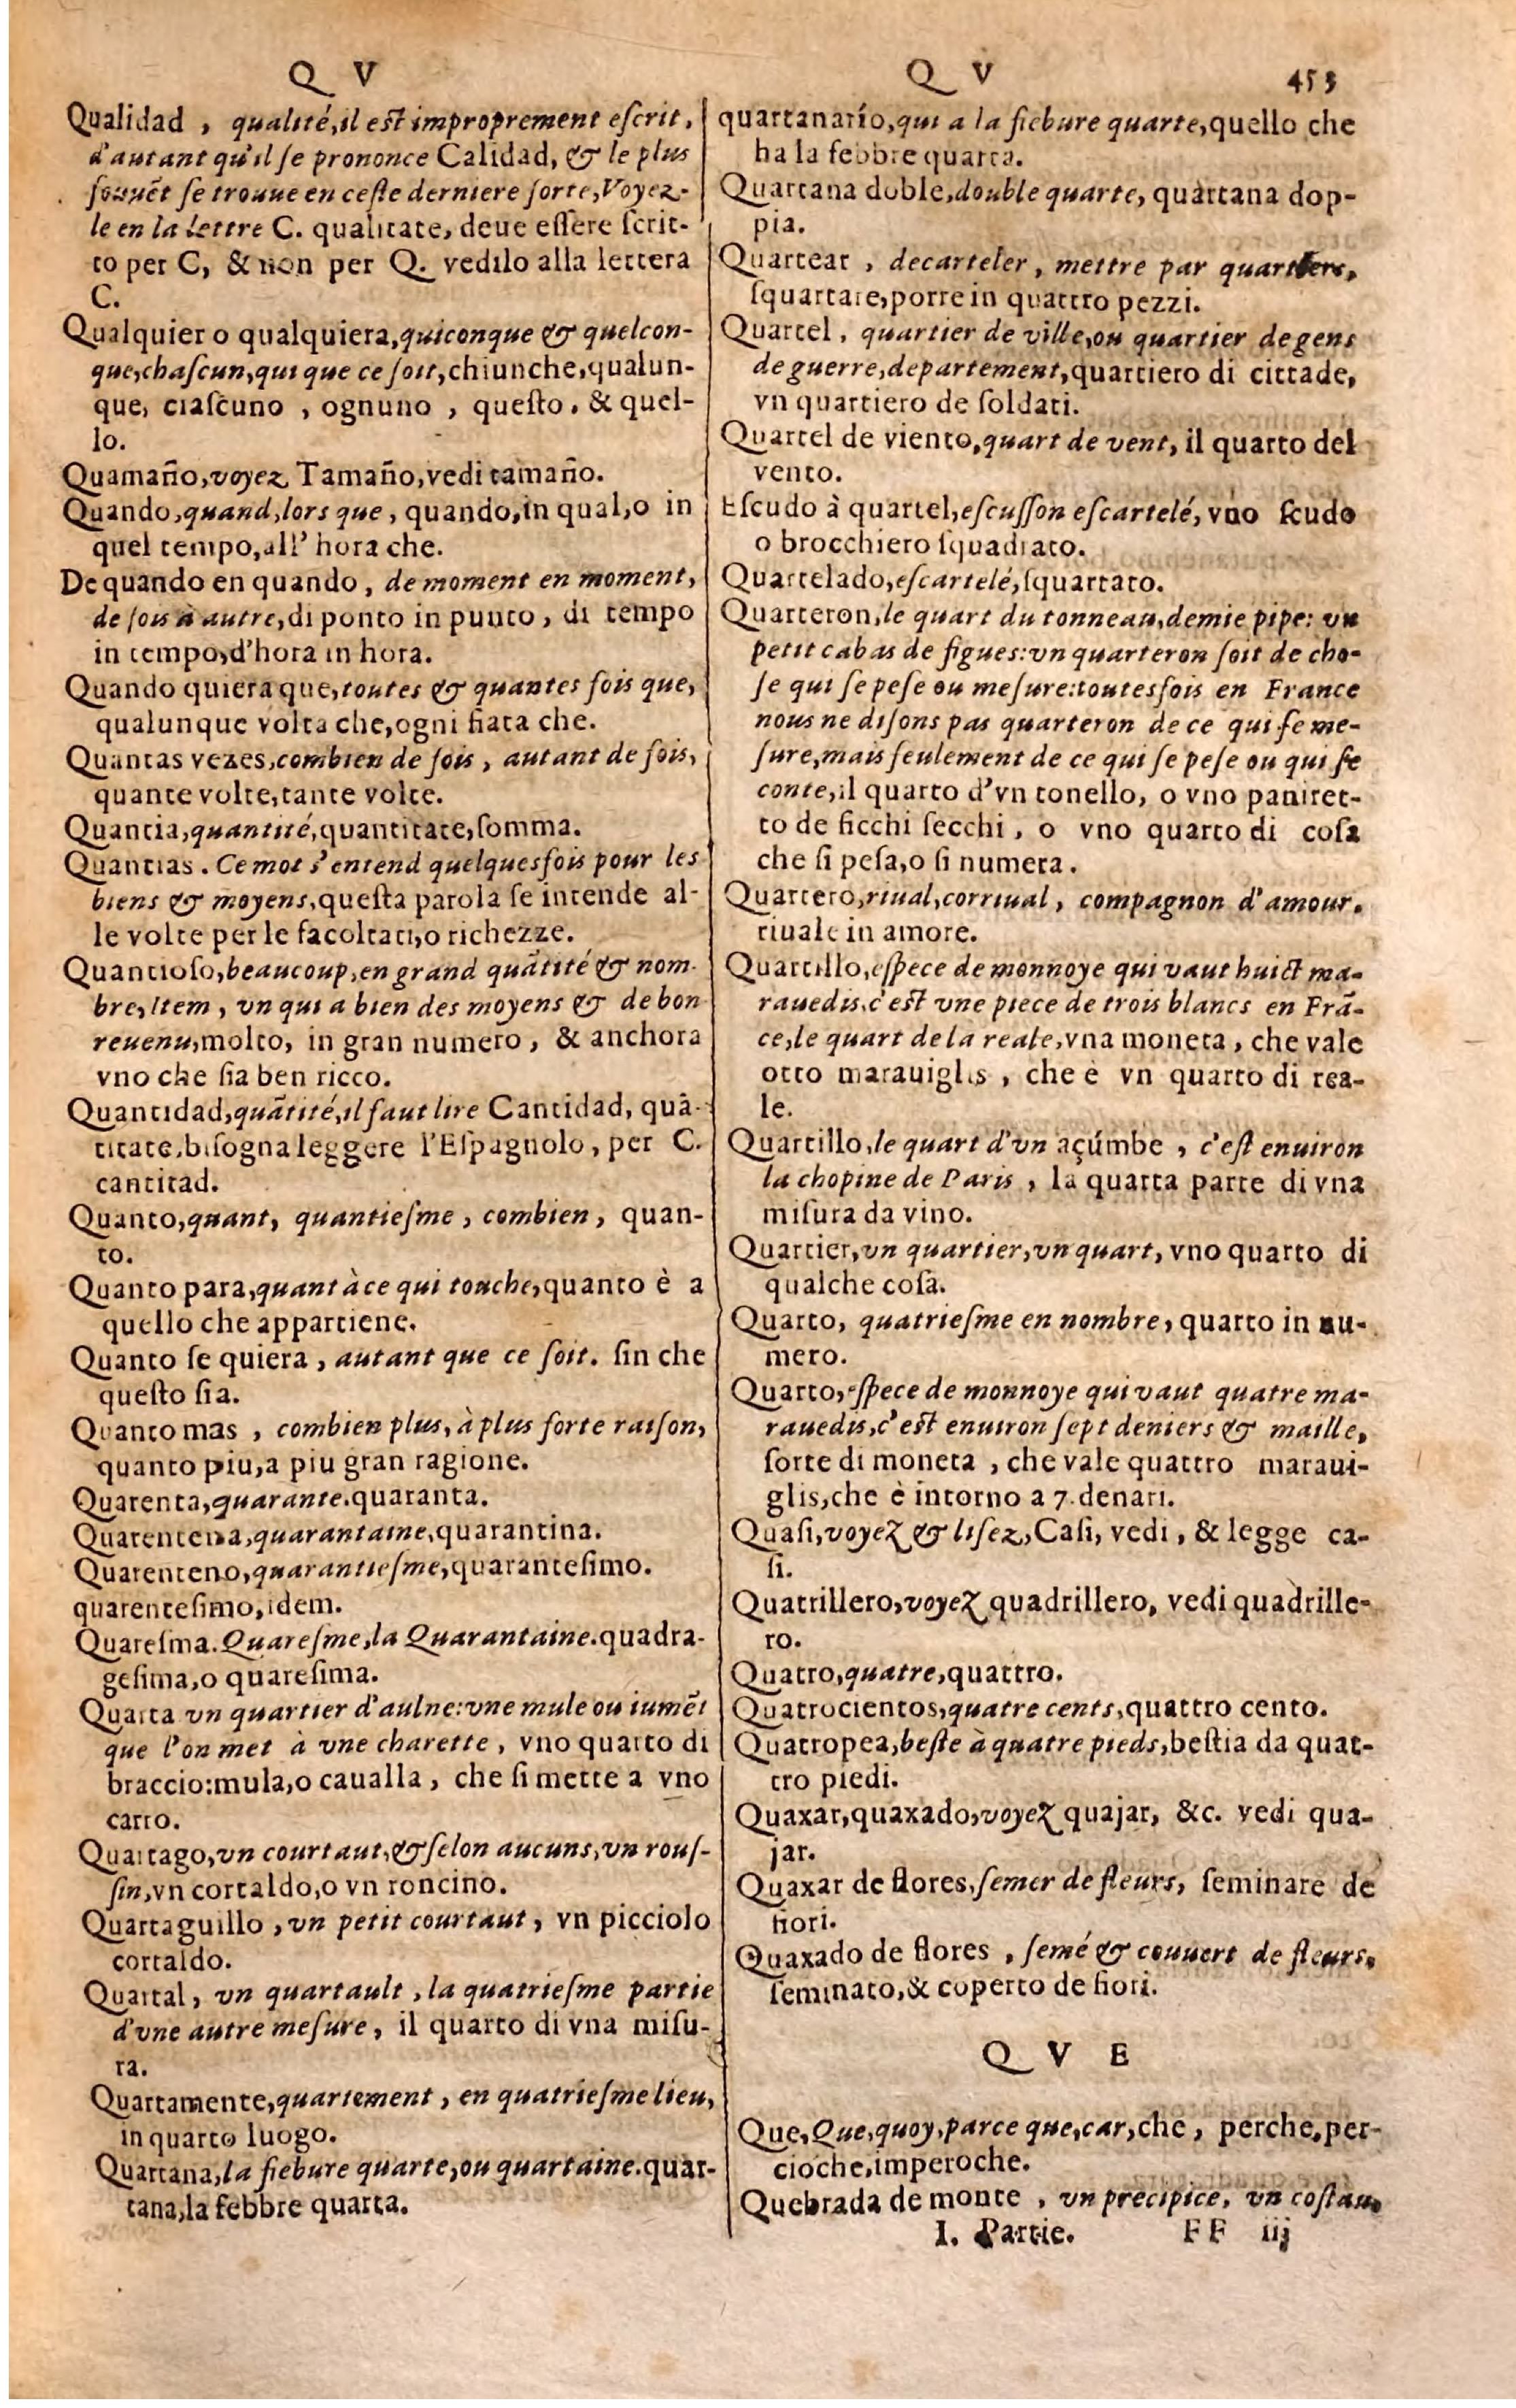 Q V
Qualidad , qualité,il est improprement eſcrit,
d'autant qu'il ſe prononce Calidad, & le plus
ſouuẽt ſe trouue en ceſte derniere ſorte,Voyez-
le en la lettre C. qualitate, deue eſſere ſcrit-
to per C, & non per Q. vedilo alla lettera
C.
Qualquier o qualquiera,quiconque & quelcon-
que,chaſcun,qui que ce ſoit,chiunche,qualun-
que, ciaſcuno , ognuno , queſto, & quel-
lo.
Quamaño,voyez Tamaño,vedi tamaño.
Quando,quand,lors que, quando,in qual,o in
quel tempo,all' hora che.
De quando en quando, de moment en moment,
de fois à autre,di ponto in punto, di tempo
in tempo,d'hora in hora.
Quando quiera que,toutes & quantes fois que,
qualunque volta che,ogni fiata che.
Quantas vezes,combien de fois, autant de fois,
quante volte,tante volte.
Quantia,quantité,quantitate,ſomma.
Quantias. Ce mot s'entend quelquesfois pour les
biens & moyens,queſta parola ſe intende al-
le volte per le facoltati,o richezze.
Quantioſo,beaucoup,en grand quãtité & nom-
bre,Item, vn qui a bien des moyens & de bon
reuenu,molto, in gran numero, & anchora
vno che ſia ben ricco.
Quantidad,quãtité,il faut lire Cantidad, quã-
titate,biſogna leggere l'Eſpagnolo, per C.
cantitad.
Quanto,quant, quantieſme, combien, quan-
to.
Quanto para,quant à ce qui touche,quanto è a
quello che appartiene.
Quanto ſe quiera, autant que ce ſoit. ſin che
queſto ſia.
Quanto mas , combien plus, à plus forte raiſon,
quanto piu,a piu gran ragione.
Quarenta,quarante.quaranta.
Quarentena,quarantaine,quarantina.
Quarenteno,quarantieſme,quaranteſimo.
quarenteſimo,idem.
Quareſma.Quareſme,la Quarantaine.quadra-
geſima,o quareſima.
Quarta vn quartier d'aulne:vne mule ou iumẽt
que l'on met à vne charette, vno quarto di
braccio:mula,o caualla, che ſi mette a vno
carro.
Quartago,vn courtaut,& ſelon aucuns,vn rouſ-
ſin,vn cortaldo,o vn roncino.
Quartaguillo ,vn petit courtaut, vn picciolo
cortaldo.
Quartal, vn quartault ,la quatrieſme partie
d'vne autre meſure, il quarto di vna miſu-
ra.
Quartamente,quartement, en quatrieſme lieu,
in quarto luogo.
Quartana,la fiebure quarte,ou quartaine.quar-
tana,la febbre quarta.
Q V 453
quartanario,qui a la fiebure quarte,quello che
ha la febbre quarta.
Quartana doble,double quarte, quartana dop-
pia.
Quartear , decarteler, mettre par quartiers,
ſquartare,porre in quattro pezzi.
Quartel, quartier de ville,ou quartier de gens
de guerre,departement,quartiero di cittade,
vn quartiero de ſoldati.
Quartel de viento,quart de vent, il quarto del
vento.
Eſcudo à quartel,eſcuſſon eſcartelé, vno ſcudo
o brocchiero ſquadrato.
Quartelado,eſcartelé,ſquartato.
Quarteron,le quart du tonneau,demie pipe: vn
petit cabas de figues:vn quarteron ſoit de cho-
ſe qui ſe peſe ou meſure:toutesfois en France
nous ne diſons pas quarteron de ce qui ſe me-
ſure,mais ſeulement de ce qui ſe peſe ou qui ſe
conte,il quarto d'vn tonello, o vno paniret-
to de ficchi ſecchi, o vno quarto di coſa
che ſi peſa,o ſi numera.
Quartero,riual,corriual, compagnon d'amour,
riuale in amore.
Quartillo,eſpece de monnoye qui vaut huict ma-
rauedis,c'est vne piece de trois blancs en Frã-
ce,le quart de la reale,vna moneta, che vale
otto marauiglis , che è vn quarto di rea-
le.
Quartillo,le quart d'vn açúmbe , c'eſt enuiron
la chopine de Paris , la quarta parte di vna
miſura da vino.
Quartier,vn quartier,vn quart, vno quarto di
qualche coſa.
Quarto, quatrieſme en nombre, quarto in nu-
mero.
Quarto,eſpece de monnoye qui vaut quatre ma-
rauedis,c'est enuiron ſept deniers & maille,
ſorte di moneta , che vale quattro maraui-
glis,che è intorno a 7.denari.
Quaſi,voyez & liſez,Caſi, vedi, & legge ca-
ſi.
Quatrillero,voyez quadrillero, vedi quadrille-
ro.
Quatro,quatre,quattro.
Quatrocientos,quatre cents,quattro cento.
Quatropea,beſte à quatre pieds,beſtia da quat-
tro piedi.
Quaxar,quaxado,voyez quajar, &c. vedi qua-
jar.
Quaxar de flores,ſemer de fleurs, ſeminare de
fiori.
Quaxado de flores , ſemé & couuert de fleurs,
ſeminato,& coperto de fiori.
Q V E
Que,Que,quoy,parce que,car,che, perche,per-
cioche,imperoche.
Quebrada de monte , vn precipice, vn coſtau,
I. Partie. FF iij